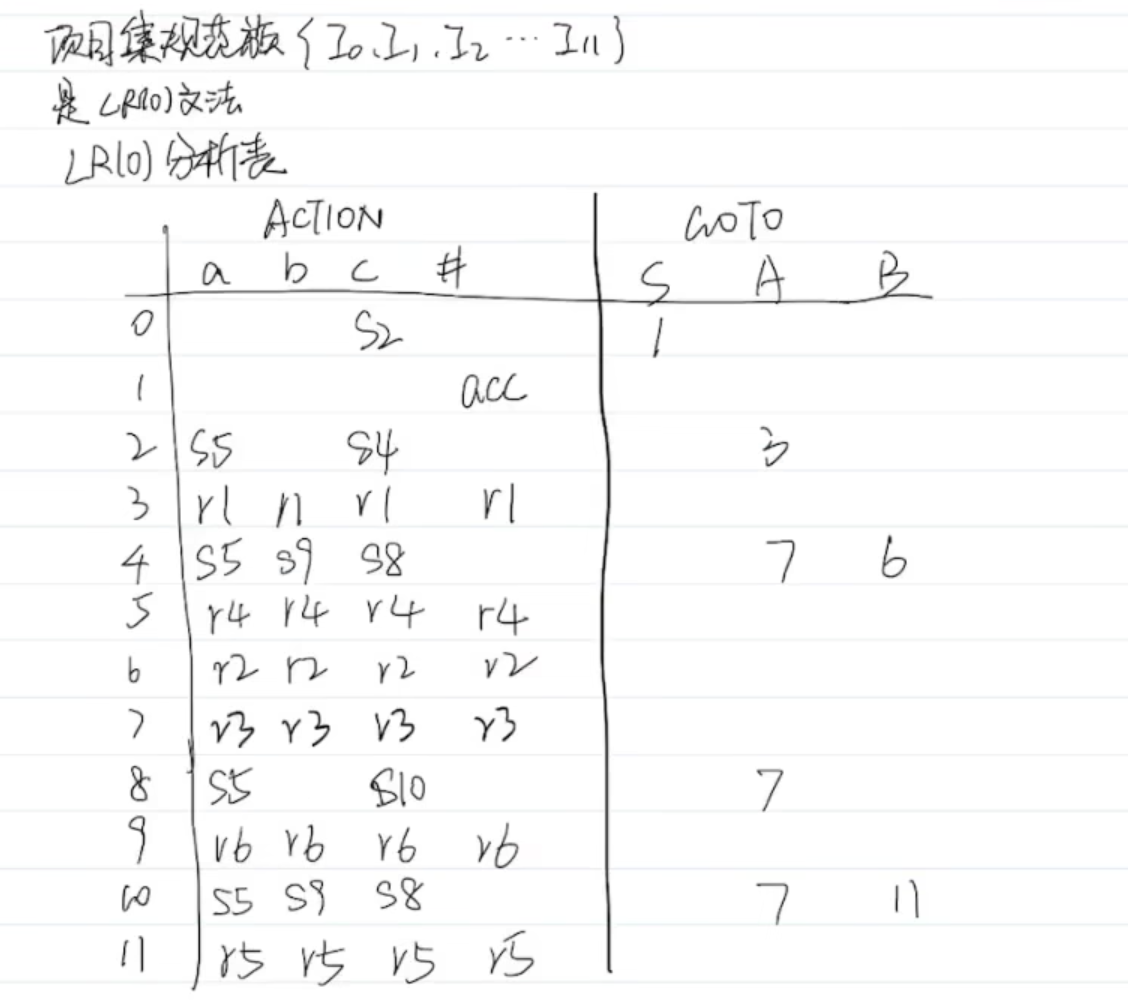 项目集规范族{I₀、I₁、I₂…I₁₁}
是LR(0)文法
LR(0)分析表
ACTION GOTO
a b c # S A B
0 S2 1
1 acc
2 S5 S4 3
3 r1 r1 r1 r1
4 S5 S9 S8 7 6
5 r4 r4 r4 r4
6 r2 r2 r2 r2
7 r3 r3 r3 r3
8 S5 S10 7
9 r6 r6 r6 r6
10 S5 S9 S8 7 11
11 r5 r5 r5 r5